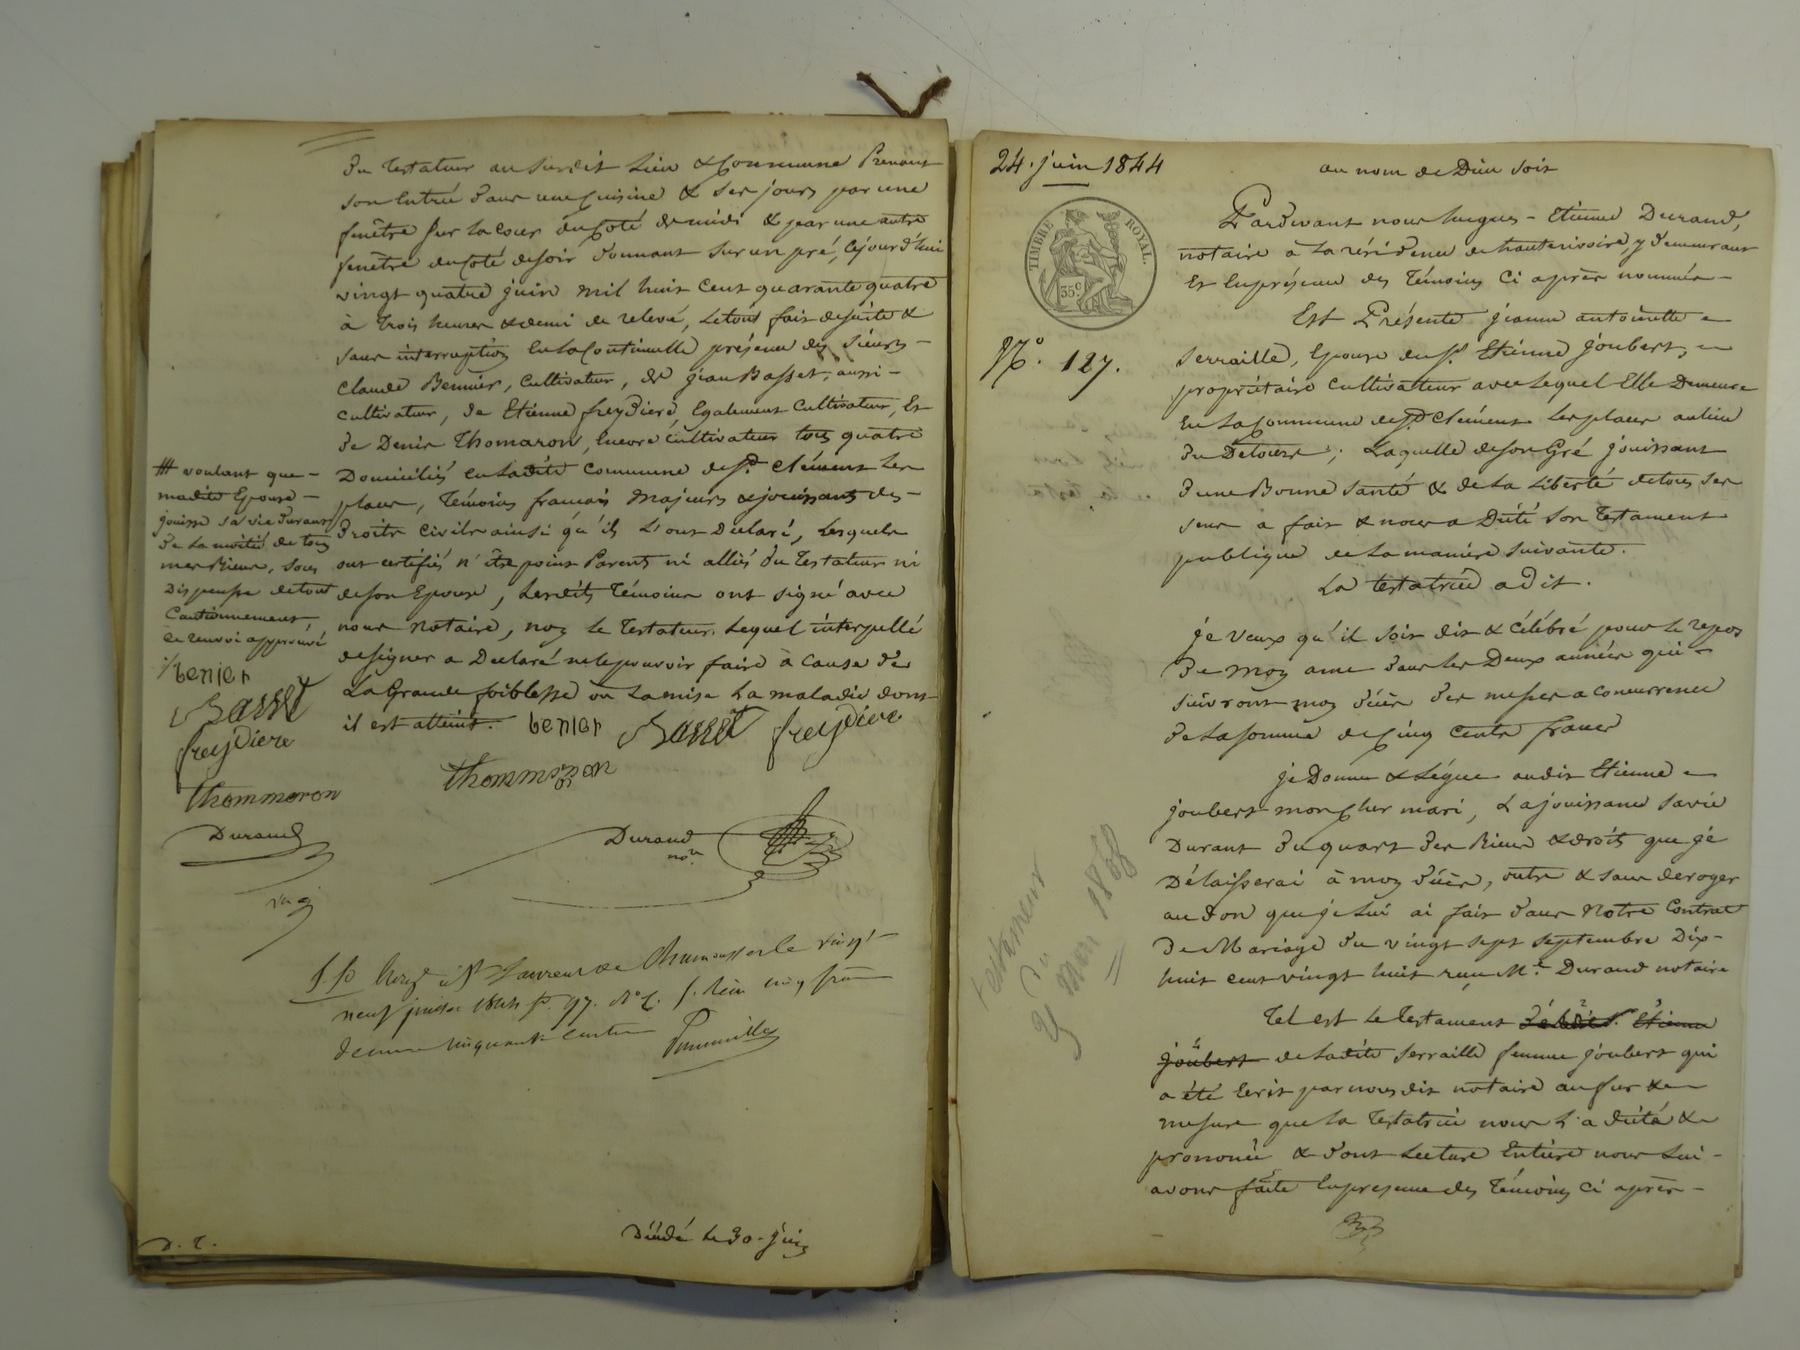 du testateur au susdit lieu & Commune Prenant
son Entrée dans une Cuisine & ses jours par une
fenêtre sur la cour du Coté de midi & par une autre
fenêtre du Coté de soir donnant sur un pré, Cejourd'hui
vingt quatre juin mil huit cent quarante quatre
à trois heures & demi de relevé, le tout fait de suite &
sans interruption En la Continuelle présence des sieurs -
Claude Bennier, Cultivateur, de jean Basset, aussi -
cultivateur, de Etienne freydiere, Egalement Cultivateur, Et
de Denis Thomaron, Encore cultivateur tous quatre
Domiciliés en ladite Commune de St. Clément les
places, témoins francais Majeurs & jouissants des -
droits Civils ainsi qu'ils L'ont Déclaré, Lesquels
ont certifiés n'être point Parents ni alliés du testateur ni
de son Epouse, Lesdits témoins ont signé avec
nous Notaire, non le testateur lequel interpellé
de signer a Declaré ne le pouvoir faire à Cause de
La Grande foiblesse ou La mise La maladie dont
il est atteint. benier Basset freydiere
thommaron
Durand
nore.
# voulant que -
madite Epouse -
jouisse sa vie durant
de la moitié de tous
mes Biens, sous
Dispense de tout
Cautionnement,
Ce renvoi approuvé
benier
Basset
freydiere
thommaron
Durand
St Laurent de Chamousset le vingt
neuf juillet 1844 fo. 97.
Décédé le 30 juin
D. T.
24. juin 1844
au nom de Dieu soit
TIMBRE ROYAL.
35 c.
No. 127.
Pardevant nous hugues - Etienne Durand,
notaire à la résidence de hauterivoire, y demeurant
Et En présence des témoins Ci après nommés -
Est Présente jeanne antoinette
Serraille, Epouse du Sr. Etienne joubert,
propriétaire Cultivateur avec lequel Elle Demeure
En la Commune de St Clément les places au lieu
du Detours; Laquelle de son Gré jouissant
d'une Bonne santé & de la Liberté de tous ses
sens a fait & nous a Dicté son testament
publique de la manière suivante.
La testatrice a dit.
je veux qu'il soit dit & Célébré pour le repos
de mon ame dans les Deux années qui -
suivront mon décès des messes a concurrence
de la somme de Cinq Cents francs
je Donne & Légue audit Etienne
joubert mon Cher mari, La jouissance sa vie
Durant du quart des Biens & droits que je
Délaisserai à mon décès, outre & sans deroger
au don que je lui ai fait dans Notre Contrat
de Mariage du vingt sept septembre Dix-
huit cent vingt huit reçu Me. Durand notaire
Tel est le testament Etienne
joubert de ladite Serraille femme joubert qui
a été Ecrit par nous dit notaire au fur &
mesure que la testatrice nous L'a dicté &
prononcé & dont Lecture Entière nous lui -
avons faite En présence des témoins Ci après -
testament
du
9 Mars 1868